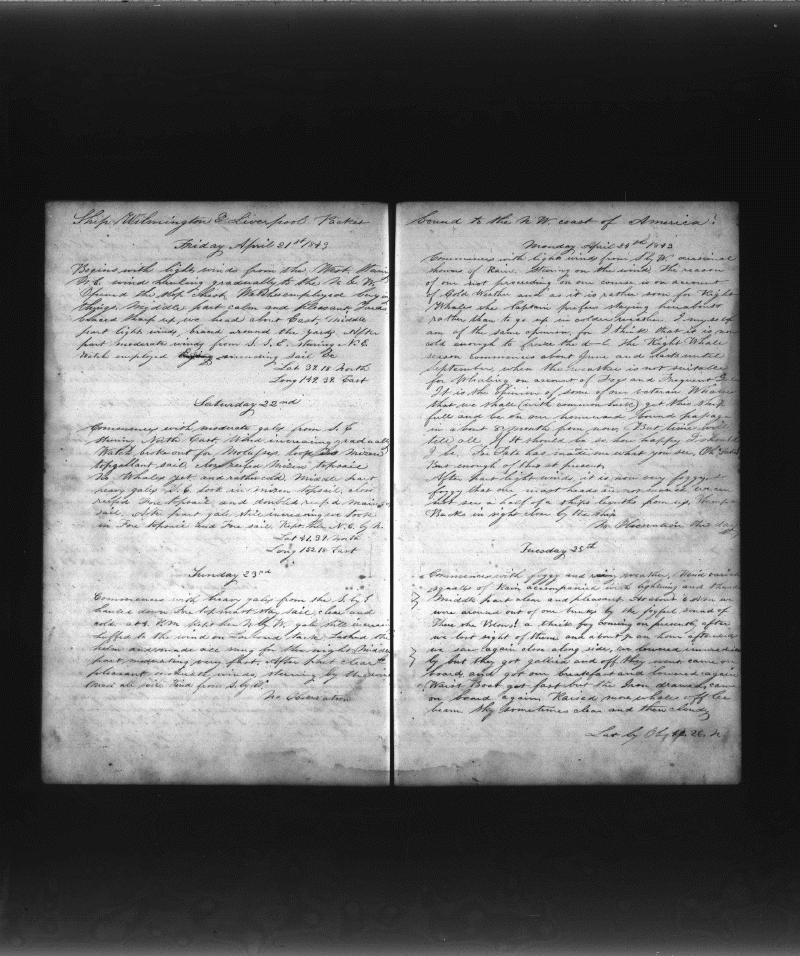 Ship Wilmington & Liverpool Packet
Friday April 21st 1843
Begins with light winds from the West
wind hauling gradually to the N.E. W
the ship Watch employed
Middle part calm and pleasant
wared ship up, we head about East, Middle
part light winds, braced around the yards After
part moderate winds from S.S.E. Steering N.E.
Watch employed mending sail &c
Lat 39.18 North
Long 149.38 East
Saturday 22nd
Commences with moderate gales from S.E
Steering North East, Wind increasing gradually
Watch broke out for Molasses, took in Mizen
topgallant sail, close reefed Mizen topsail
No Whales yet and rather cold. Middle part
heavy gales S.E. took in Mizen topsail, close
reefed Fore topsail and double reefed Main
sail. After part gale still increasing we took
in Fore topsail and Fore sail. Kept the N.E. by N.
Lat 41.39 North
Long 152.18 East
Sunday 23rd
Commences with heavy gales from the S. by E
hauled down Fore topmast stay sail, clear and
cold at 8 P.M. kept her N by W. gale still increasing
luffed to the wind on Larboard tack. Lashed the
helm and made all snug for the night, Middle
part moderating very fast. After part clear &
pleasant with winds, steering by the wind
under all sail. Wind from S. by W.
No Observation
bound to the N.W. coast of America!
Monday April 24th 1843
Commences with light winds from S by W. occasional
showers of Rain. Steering on the wind. The reason
of our not proceeding on our course is on account
of Cold Weather and as it is rather soon for Right
Whales the Captain prefers staying hereabouts
rather than to go up in colder weather. I myself
am of the same opinion, for I think that it is now
cold enough to freeze the d—l. The Right Whale
season commences about June and lasts until
September, when the weather is not suitable
for Whaling on account of Fogs and Frequent Gales
It is the opinion of some of our veteran Whalers
that we shall (with common luck) get this ship
full and be on our homeward bound passage
in about 8 months from now, But time will
tell all. If it should be so how happy I should
be. For Tate has in what you see,
But enough of this at present.
After part light winds, it is now very foggy, so
foggy that our mast heads are not manned we can
not see a half of a ships length from us, Hump
Backs in sight close by the ship
No Observation this day
Tuesday 25th
Commences with foggy and rainy weather, Wind variable
squalls of Rain accompanied with lightning and thunder
Middle part clear and pleasant. At about 6 A.M. we
were around out of our bunks by the joyful sound of
There she Blows! a thick fog coming on presently after
we lost sight of them and about ½ an hour afterwards
we saw again close along side, we lowered immediate
ly but they got gallied and off they went came on
board and got our breakfast and lowered again
Waist Boat got fast but the Iron drawed, came
on board again Raised more whales off lee
beam Sky sometimes clear and then cloudy
Lat by Ob 26. N